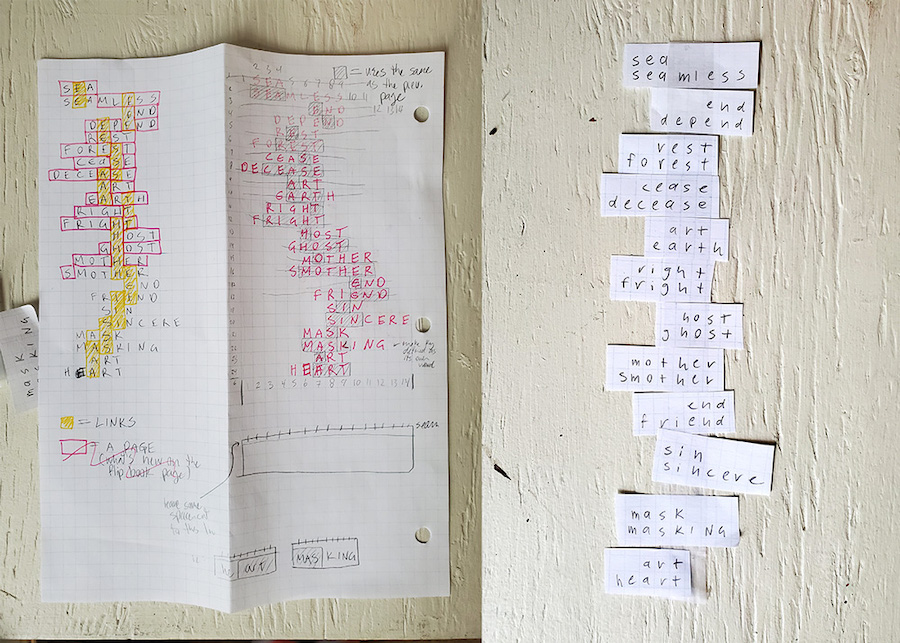 SEA
SEAMLESS
END
DEPEND
REST
FOREST
CEASE
DECEASE
ART
EARTH
RIGHT
FRIGHT
HOST
GHOST
MOTHER
SMOTHER
END
FRIEND
SIN
SINCERE
MASK
MASKING
ART
HEART
= LINKS
= A PAGE
(what's new on the
flip book page)
mask
masking
2 3 4
= uses the same
as the prev.
page
SEAS 6 7 8 9
SEAMLESS 10 11
END 12 13 14
DEPEND
REST
FOREST
CEASE
DECEASE
ART
EARTH
RIGHT
FRIGHT
HOST
GHOST
MOTHER
SMOTHER
END
FRIEND
SIN
SINCERE
MASK
MASKING
ART
HEART
2 3 4 5 6 7 8 9 10 11 12 13 14
leave some
he art
MAS KING
sea
seamless
end
depend
rest
forest
cease
decease
art
earth
right
fright
host
ghost
mother
smother
end
friend
sin
sincere
mask
masking
art
heart